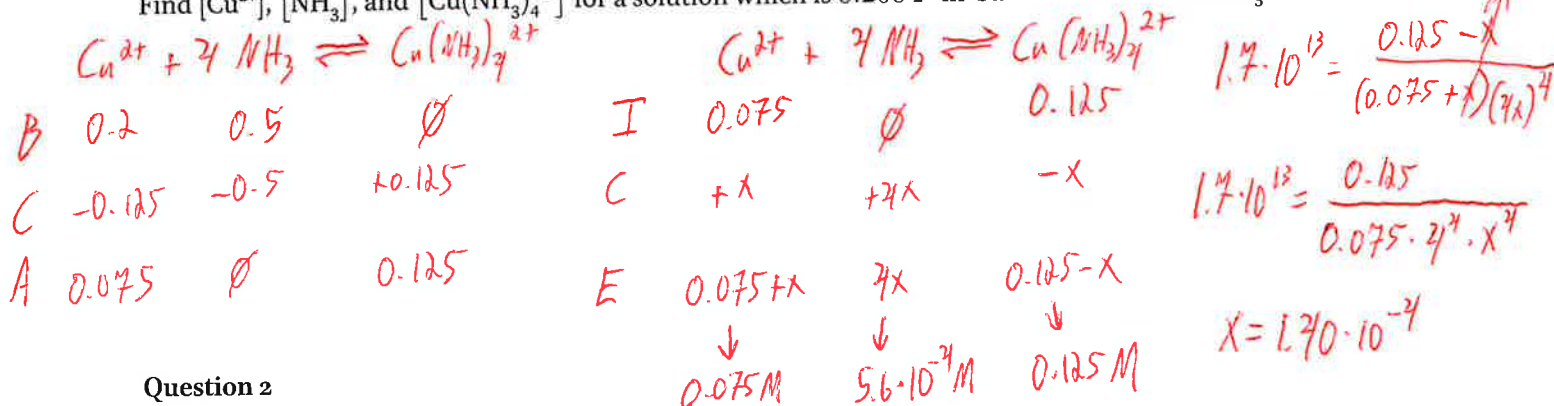 Find [Cu²⁺], [NH₃], and [Cu(NH₃)₄²⁺] for a solution which is
Cu²⁺ + 4 NH₃ ⇌ Cu(NH₃)₄²⁺
B 0.2 0.5 ∅
C -0.125 -0.5 +0.125
A 0.075 ∅ 0.125
Cu²⁺ + 4 NH₃ ⇌ Cu(NH₃)₄²⁺
I 0.075 ∅ 0.125
C +x +4x -x
E 0.075+x 4x 0.125-x
↓ ↓ ↓
0.075M 5.6·10⁻⁴M 0.125M
1.7·10¹³ = (0.125 - x) / ((0.075 + x)(4x)⁴)
1.7·10¹³ = 0.125 / (0.075·4⁴·x⁴)
x = 1.40·10⁻⁴
Question 2